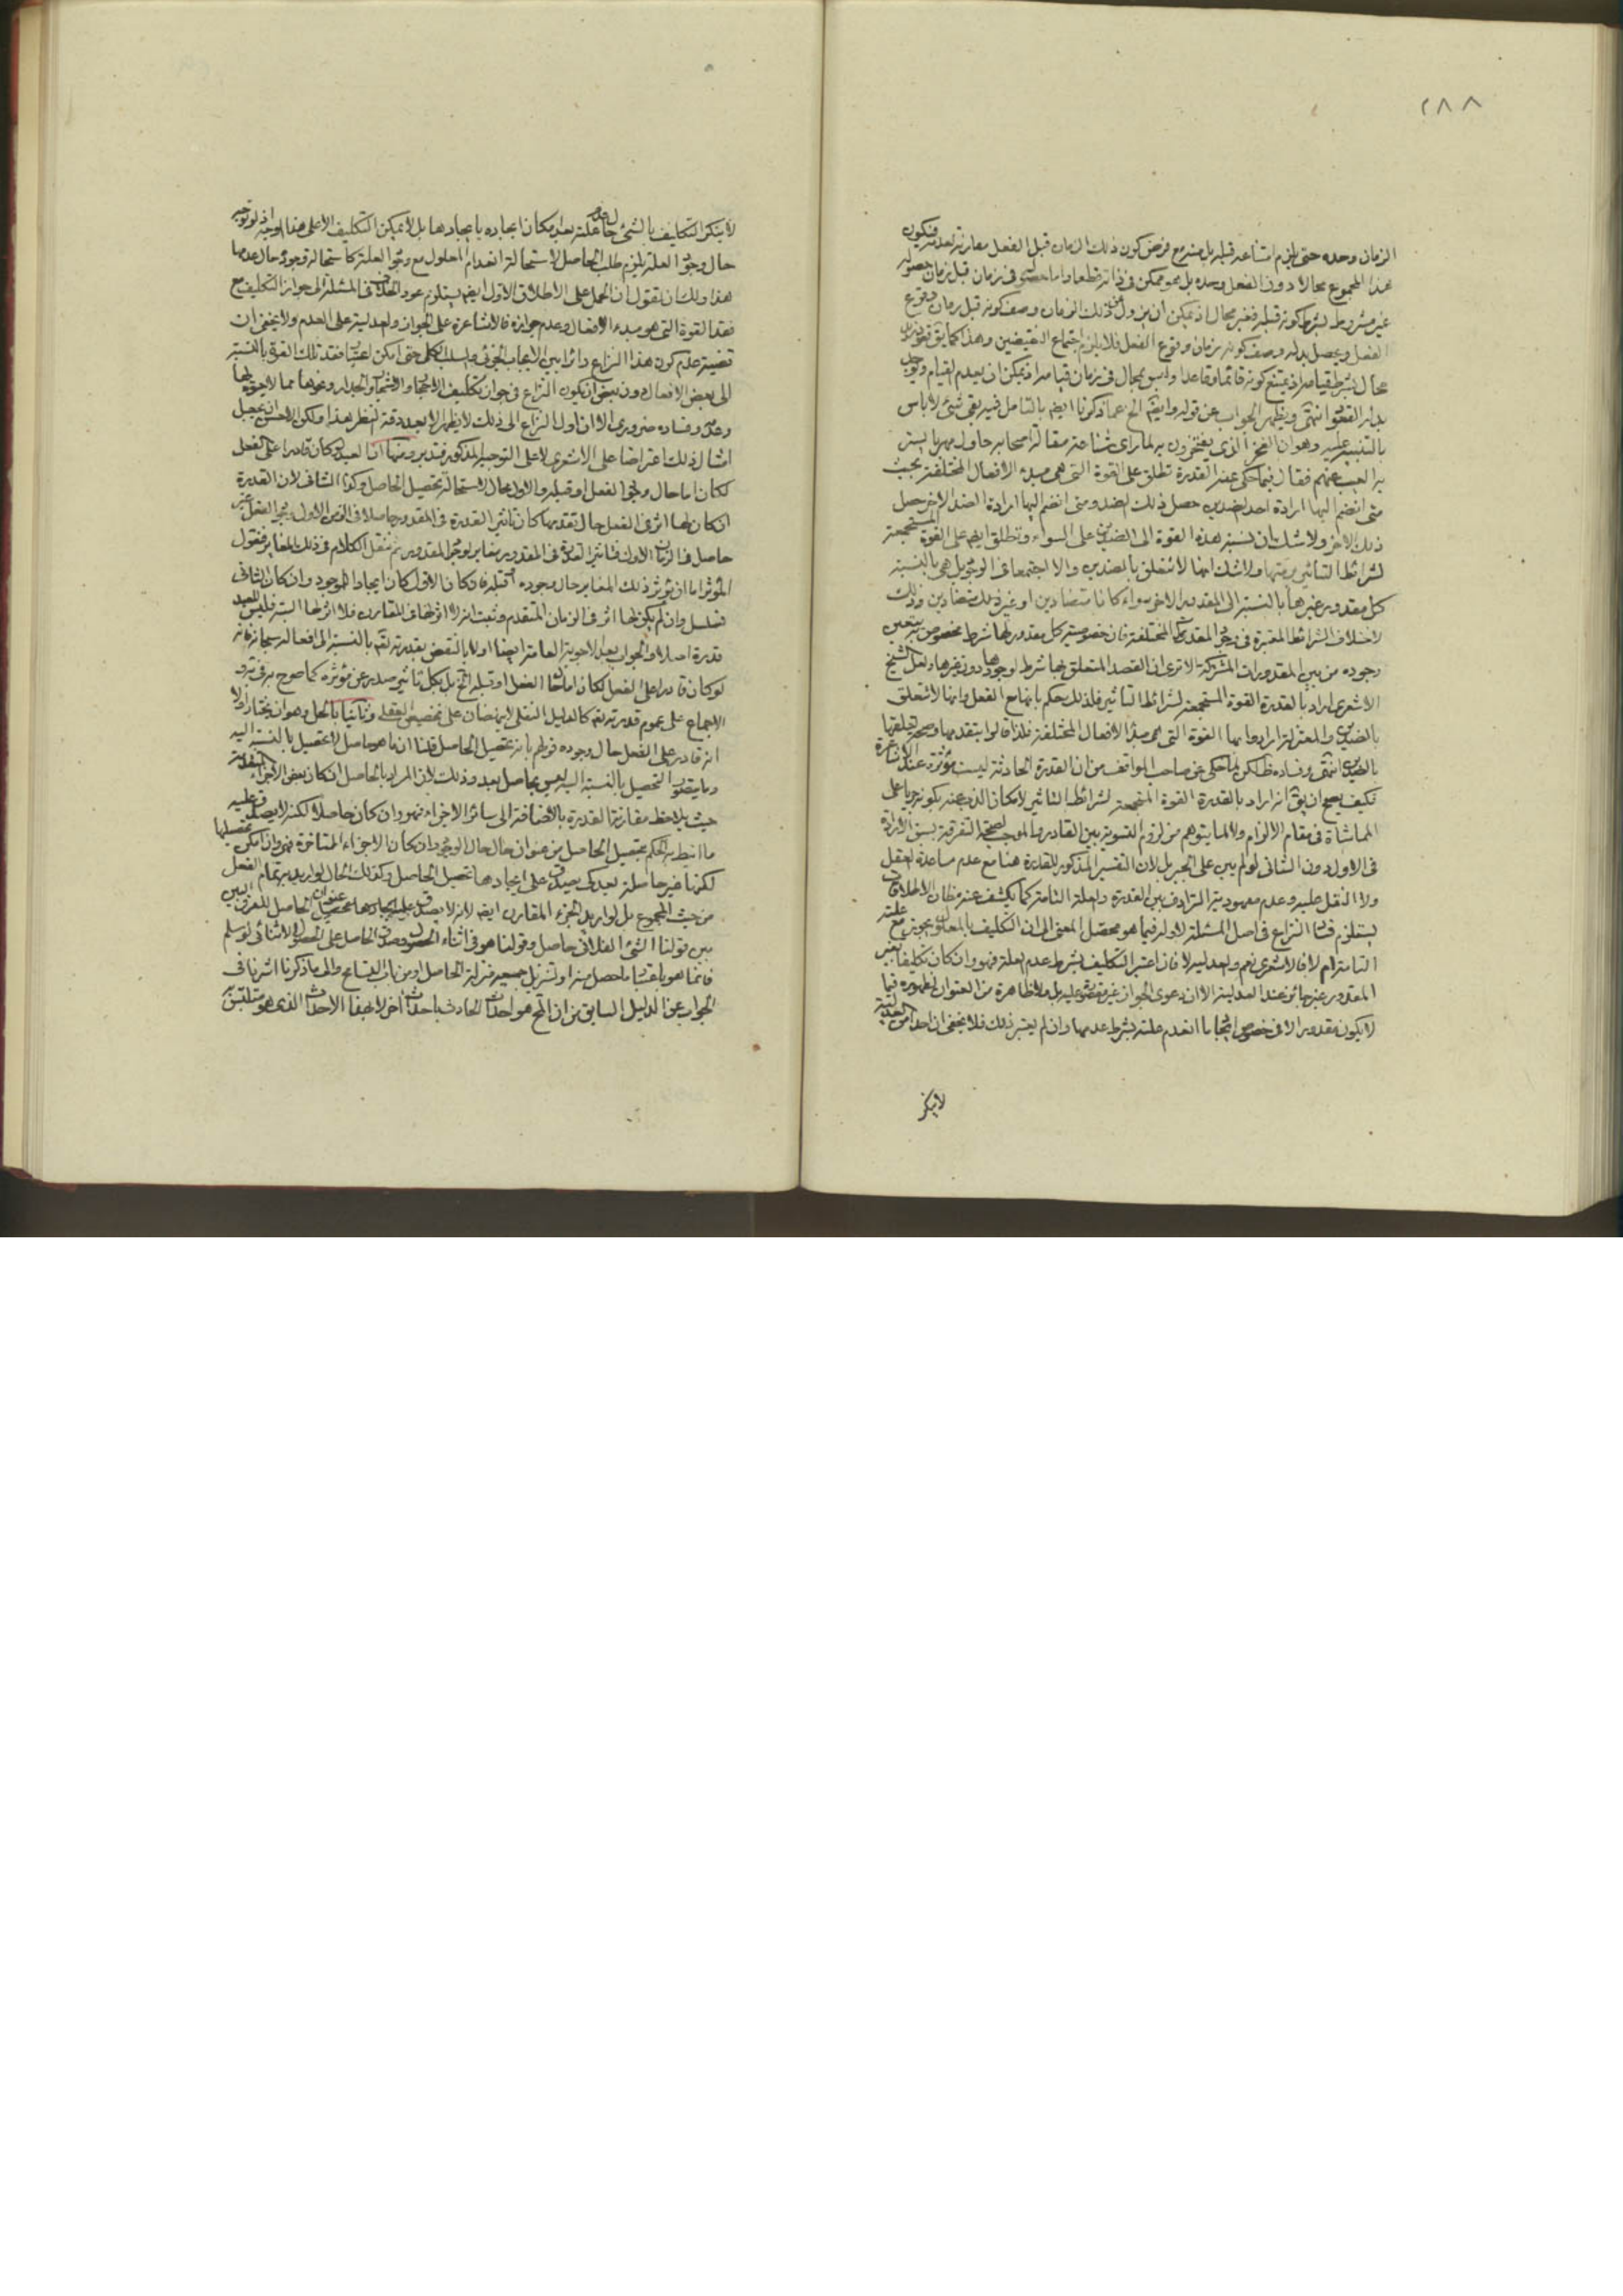 ٢٨٨
الزمان وحده حتى يلزم امتناعه قبله بل منه مع فرض كون ذلك الزمان قبل الفعل مقارنة لعدمه فيكون
هذا المجموع محالا دون الفعل وحده بل هو ممكن في ذاته قطعا واما حصوله في زمان قبل زمان حصوله
غير مشروط بشرط كونه قبله فغير محال اذ يمكن ان يزول عن ذلك الزمان وصف كونه قبل زمان وقوع
الفعل ويحصل بدله وصف كونه زمان وقوع الفعل فلا يلزم اجتماع النقيضين وهذا كما يق قعود زيد
محال بشرط قيامه اذ يمتنع كونه قائما وقاعدا وليس بمحال في زمان قيامه اذ يمكن ان يعدم القيام ويوجد
بدله القعود انتهى ويظهر الجواب عن قوله وايضا الخ عما ذكرنا ايضا بالتامل فيه بقي شئ لا باس
بالتنبيه عليه وهو ان الفخر الذي يفتخرون به لما راى شناعة مقالة اصحابه حاول مهربا يستر
به العيب عنهم فقال فيما حكي عنه القدرة تطلق على القوة التي هي مبدء الافعال المختلفة بحيث
متى انضم اليها ارادة احد الضدين حصل ذلك الضد ومتى انضم اليها ارادة الضد الاخر حصل
ذلك الاخر ولا شك بان نسبة هذه القوة الى الضدين على السواء وتطلق ايضا على القوة المستجمعة
لشرائط التاثير برمتها ولا شك انها لا تتعلق بالضدين والا اجتمعا في الوجود بل هي بالنسبة
كل مقدور غيرها بالنسبة الى المقدور الاخر سواء كانا متضادين او غير متضادين وذلك
لاختلاف الشرائط المعتبرة في وجود المقدورات المختلفة فان خصوصية كل مقدور لها شرط مخصوص به يتعين
وجوده من بين المقدورات المشتركة الا ترى ان القصد المتعلق بها شرط لوجودها دون غيرها ولعل الشيخ
الاشعري اراد بالقدرة القوة المستجمعة لشرائط التاثير فلذلك حكم بانها مع الفعل وانها لا تتعلق
بالضدين والمعتزلة ارادوا بها القوة التي هي مبدأ الافعال المختلفة فلذا قالوا بتقدمها وصحة تعلقها
بالضدين انتهى وفساده ظاهر لما حكي عن صاحب المواقف من ان القدرة الحادثة ليست مؤثرة عند الاشاعرة
فكيف يصح ان يق انه اراد بالقدرة القوة المستجمعة لشرائط التاثير
المماشاة في مقام الالزام ولا لما يتوهم من لزوم التسوية بين القادر والموجب لصحة التفرقة بسبق الارادة
في الاول دون الثاني لو لم يبن على الجبر بل لان التفسير المذكور للقدرة هنا مع عدم مساعدة العقل
ولا النقل عليه وعدم معهودية الترادف بين القدرة والعلة التامة كما يكشف عنه مظان الاطلاقات
يستلزم فساد النزاع في اصل المسئلة لاوله فيما هو محصل المعنى الى ان التكليف بالمعلول يجوز مع علته
التامة ام لا فالاشعري نعم والعدلية لا فان اعتبر التكليف بشرط عدم العلة فهو وان كان تكليفا بغير
المقدور غير جائز عند العدلية الا ان دعوى الجواز غير مقصود عليه بل ملاحظة من العنوان لظهوره فيما
لا يكون مقدورا الا في خصوص ايجاب ما انعدم علته بشرط عدمها وان لم يعتبر ذلك فلا يخفى ان احدا من العدلية
لا ينكر
لا ينكر التكليف بالشئ حال عدم علته بعد امكان ايجاده بايجادها بل لا يمكن التكليف الا على هذا الوجه اذ لو توجه
حال وجود العلة لزم طلب الحاصل لاستحالة انعدام المعلول مع وجود العلة كاستحالة وجوده حال عدمها
هذا ولك ان تقول ان الحمل على الاطلاق الاول ايضا يستلزم عود الخلاف في المسئلة الى جواز التكليف مع
فقد القوة التي هو مبدء الافعال وعدم جوازه فالاشاعرة على الجواز والعدلية على العدم ولا يخفى ان
قضية عدم كون هذا النزاع دائرا بين الايجاب الجزئي والسلب الكلي حتى امكن اعتبار فقد تلك القوة بالنسبة
الى بعض الافعال دون بعض ان يكون النزاع في جواز تكليف الاحجار والاشجار والجدار ونحوها مما لا يقوة لها
وعدمه وفساده ضروري الا ان اول النزاع الى ذلك لا يظهر الا بعد دقة النظر بعد
امثال ذلك اعتراضا على الاشعري لا على التوجيه المذكور فتدبر ومنها ان العبد لو كان قادرا على الفعل
لكان اما حال وجود الفعل او قبله والاول محال لاستحالة تحصيل الحاصل وكذا الثاني لان القدرة
ان كان لها اثر في الفعل حال تقدمها كان تاثير القدرة في المقدور حاصلا في الزمن الاول ووجود الفعل غير
حاصل في الزمان الاول فتاثير القدرة في المقدور مغاير لوجود المقدور ثم ننقل الكلام في ذلك المغاير فنقول
المؤثر اما ان يؤثر ذلك المغاير حال وجوده او قبله فان كان الاول كان ايجادا للموجود وان كان الثاني
تسلسل وان لم يكن لها اثر في الزمان المتقدم وثبت انه لا اثر لها في المقارن فلا اثر لها البتة فليس للعبد
قدرة اصلا والجواب بعد الاجوبة العامة ايضا اولا بالنقض بقدرته تعالى بالنسبة الى افعاله سبحانه فانه
لو كان قادرا على الفعل لكان اما حال الفعل او قبله الخ بل بكل تاثير صدر عن مؤثره كما صرح به
الاجماع على عموم قدرته تعالى كالدليل النقلي لا ينهضان على تخصيص العقلي وثانيا بالحل وهو ان يختار اولا
انه قادر على الفعل حال وجوده قولهم بانه تحصيل الحاصل قلنا ان ما هو حاصل لا تحصيل بالنسبة اليه
وما يتعلق التحصيل بالنسبة اليه ليس بحاصل بعد وذلك لان المراد بالحاصل ان كان بعض الاجزاء المتقدمة
حيث يلاحظ مقارنة القدرة بالاضافة الى سائر الاجزاء فهو وان كان حاصلا لكنه لا يصدق عليه
ما انيط به الحكم بتحصيل الحاصل من عنوان حال حال الوجود وان كان الاجزاء المتاخرة فهو وان امكن تحصيلها
لكنها غير حاصلة بعد كي يصدق على ايجادها تحصيل الحاصل وكذلك الحال لو اريد به تمام الفعل
من حيث المجموع بل لو اريد الجزء المقارن ايضا لانه لا يصدق على ايجادها عنوان تحصيل الحاصل للفرق البين
بين قولنا الشئ الفلاني حاصل وقولنا هو في اثناء الحصول وصدق الحاصل على الحصول الاثنائي لو سلم
فانما هو باعتبار ما حصل منه او تنزيل جميعه منزلة الحاصل او من باب التسامح والى ما ذكرنا اشرنا في
الجواب عن الدليل السابق من ان المح هو احداث الحادث باحداث اخر لا بهذا الاحداث الذي هو متلبس به